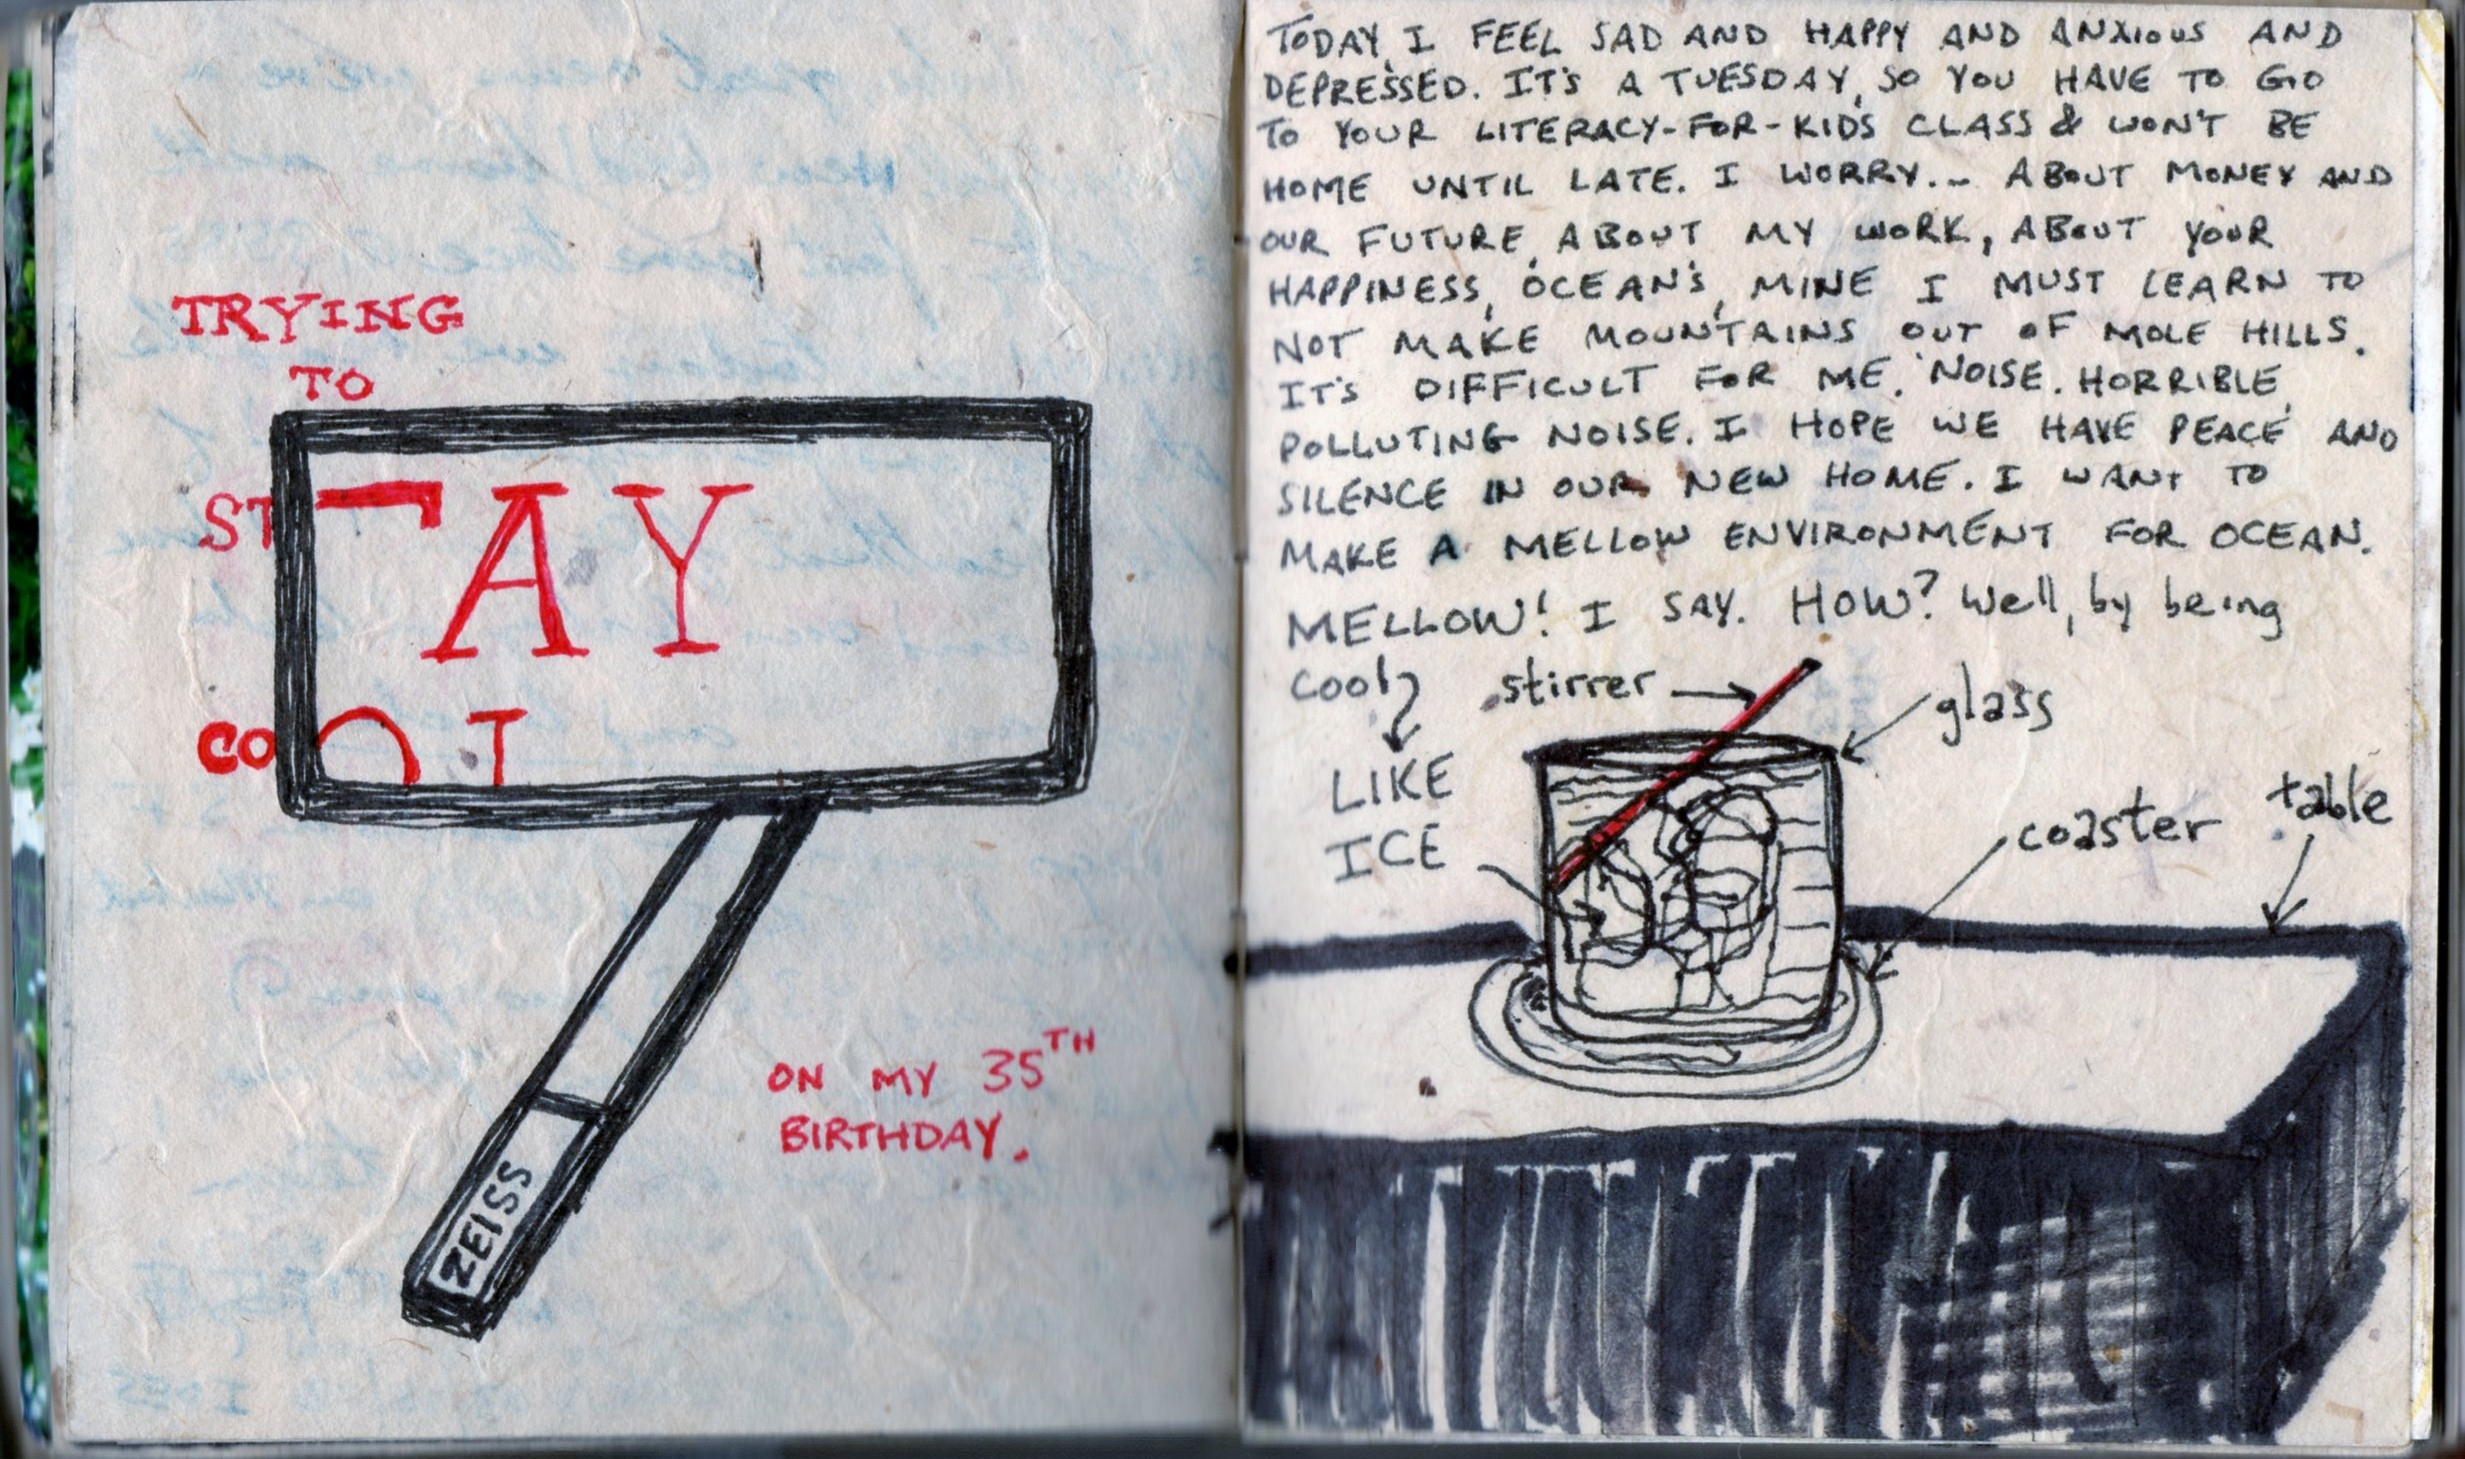 TRYING
TO
STAY
COOL
ZEISS
ON MY 35TH
BIRTHDAY.
TODAY, I FEEL SAD AND HAPPY AND ANXIOUS AND
DEPRESSED. IT'S A TUESDAY, SO YOU HAVE TO GO
TO YOUR LITERACY-FOR-KIDS CLASS & WON'T BE
HOME UNTIL LATE. I WORRY... ABOUT MONEY AND
OUR FUTURE, ABOUT MY WORK, ABOUT YOUR
HAPPINESS, OCEAN'S, MINE I MUST LEARN TO
NOT MAKE MOUNTAINS OUT OF MOLE HILLS.
IT'S DIFFICULT FOR ME. NOISE. HORRIBLE,
POLLUTING NOISE. I HOPE WE HAVE PEACE AND
SILENCE IN OUR NEW HOME. I WANT TO
MAKE A MELLOW ENVIRONMENT FOR OCEAN.
MELLOW! I SAY. HOW? Well, by being
cool
stirrer
glass
LIKE
ICE
coaster
table